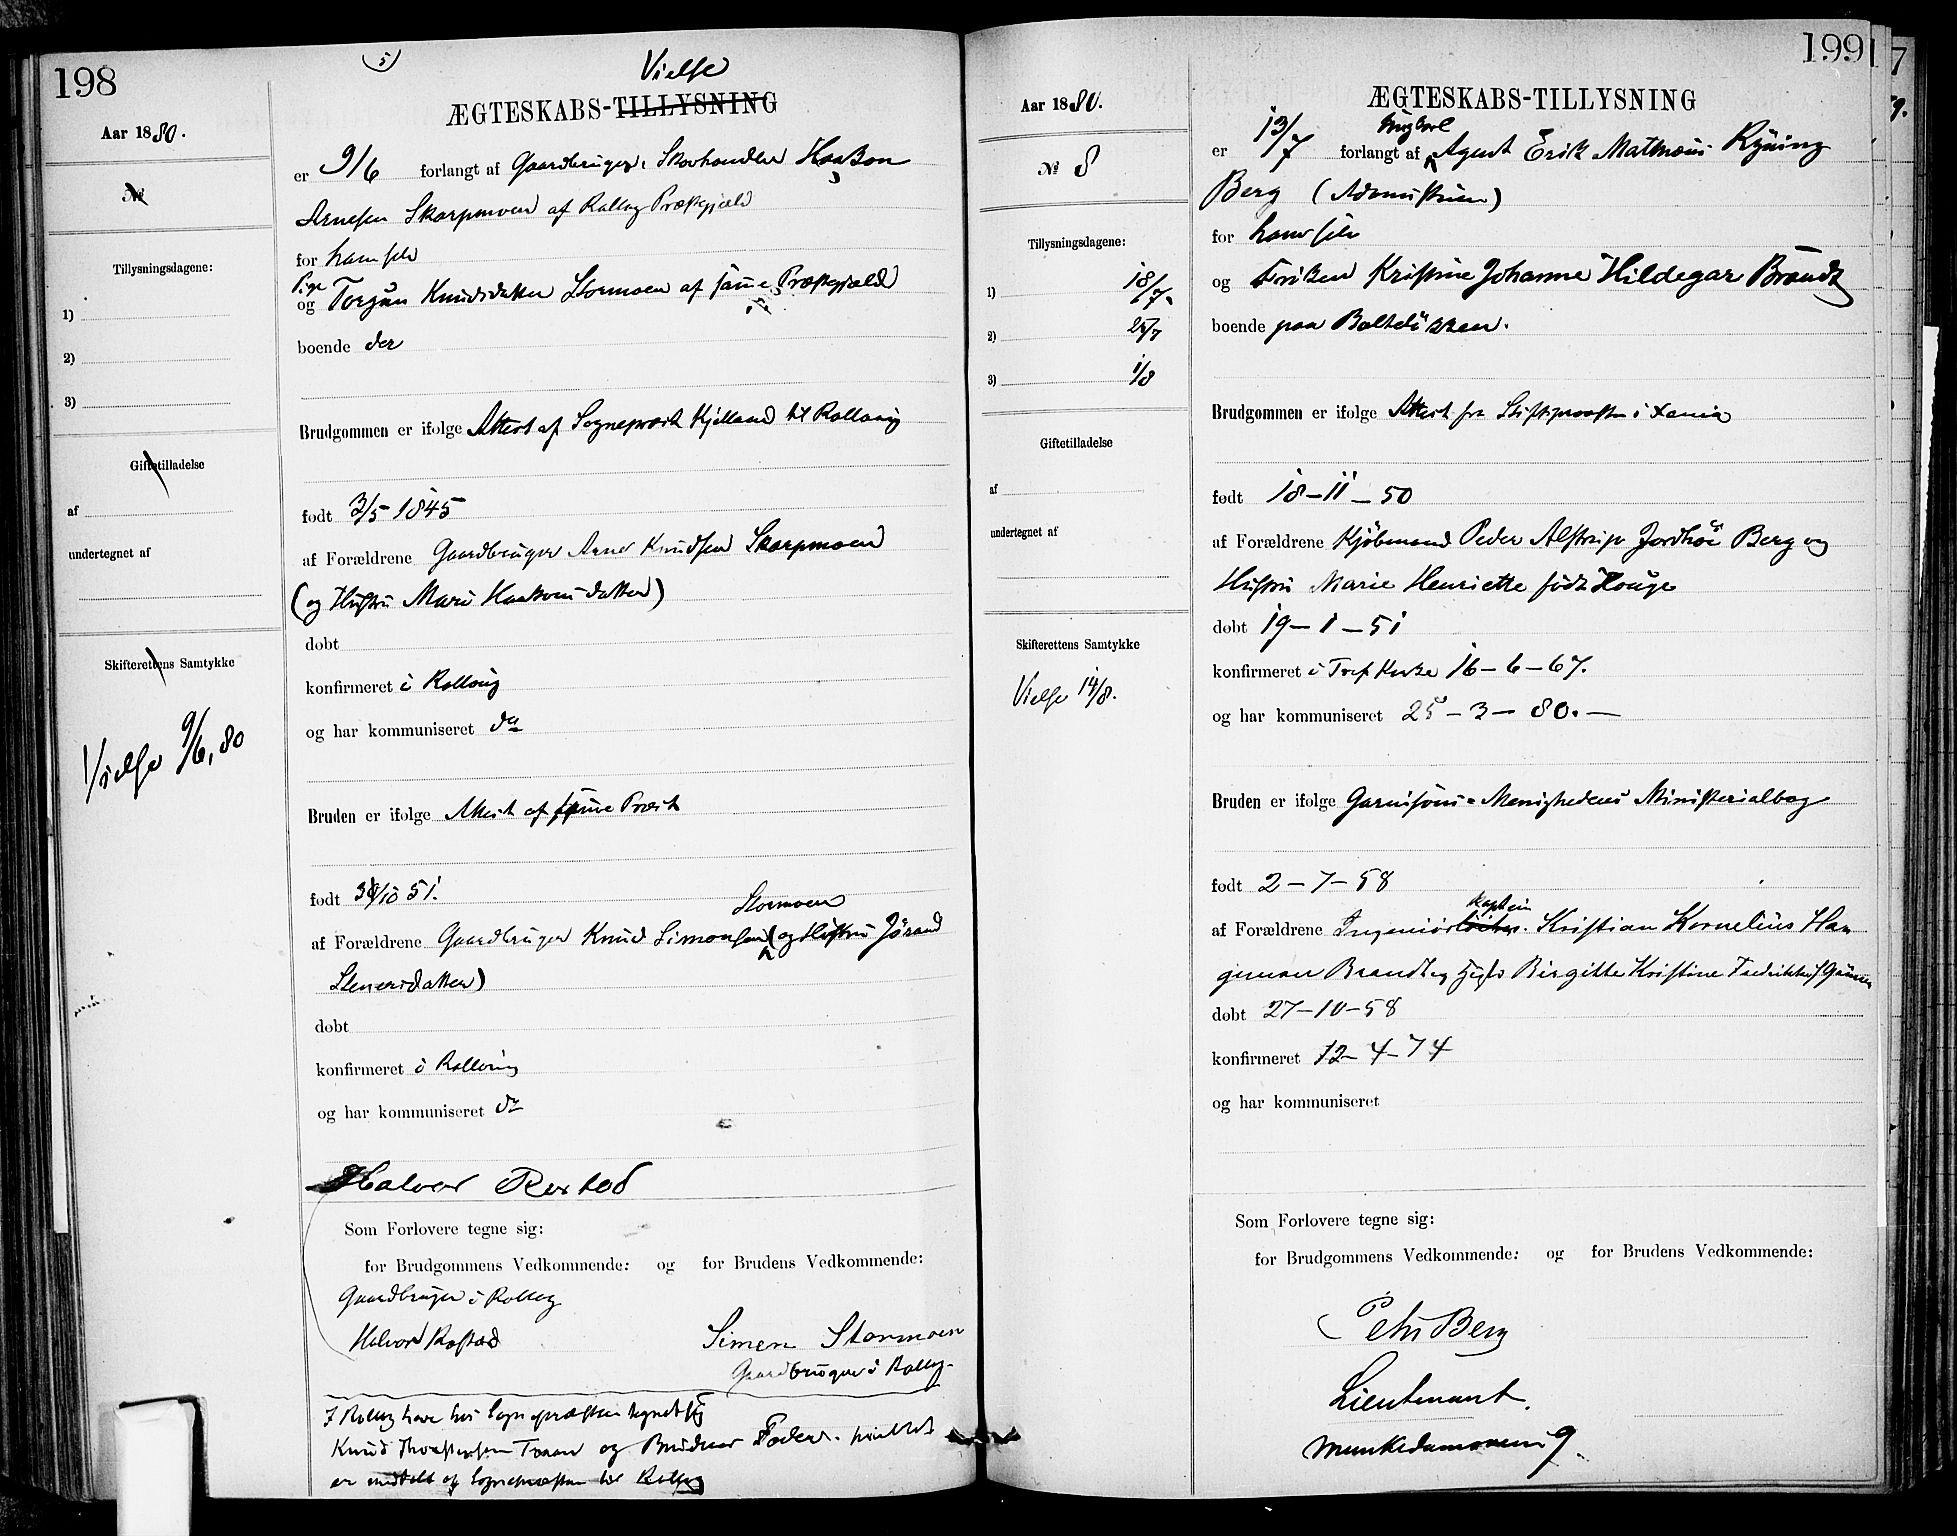 198
5)
Vielse
ÆGTESKABS-TILLYSNING
Aar 1880.
№
Tillysningsdagene:
1)
2)
3)
Giftetilladelse
af
undertegnet af
Skifterettens Samtykke
Vielse 9/6, 80
er 9/6 forlangt af Gaardbruger, Skovhandler Haakon
Arnesen Skarpmoen af Rollag Præstegjæld
for ham selv
Pige
og Torgun Knudsdatter Stormoen af samme Præstegjæld
boende der
Brudgommen er ifølge Attest af Sognepræst Kjelland til Rollaug
født 3/5 1845
af Forældrene Gaardbruger Arne Knudsen Skarpmoen
(og Hustru Mari Haakonsdatter)
døbt
konfirmeret i Rolloug
og har kommuniseret da
Bruden er ifølge Attest af samme Præst
født 30/10 51.
Stormoen
af Forældrene Gaardbruger Knud Simonsen (og Hustru Jørand
Stenersdatter)
døbt
konfirmeret i Rolloug
og har kommuniseret do
Halvor Rostad
Som Forlovere tegne sig:
for Brudgommens Vedkommende: og for Brudens Vedkommende:
Gaardbruger i Rollag
Halvor Rostad
Simen Stormoen
Gaardbruger i Rollag
I Rollag have hos Sognepræsten tegnet sig
Knud Thorstensen Traaen og Brudens Fader hvilket
er meddelt af Sognepræsten til Rollag
199
ÆGTESKABS-TILLYSNING
Aar 1880.
№ 8
Tillysningsdagene:
1) 18/7
2) 25/7
3) 1/8
Giftetilladelse
af
undertegnet af
Skifterettens Samtykke
Vielse 14/8.
Ungkarl
er 13/7 forlangt af Agent Erik Mathæus Ryning
Berg
for ham selv
og Frøken Kristine Johanne Hildegar Brandt
boende paa Bolteløkken.
Brudgommen er ifølge Attest fra Stiftsprovsten i Xania
født 18-11-50
af Forældrene Kjøbmand Peder Alstrup Jordhøi Berg og
Hustru Marie Henriette født Houge
døbt 19-1-51
konfirmeret i Tref Kirke 16-6-67.
og har kommuniseret 25-3-80.
Bruden er ifølge Garnisons-Menighedens Ministerialbog
født 2-7-58
kaptein
af Forældrene Ingeniør Kristian Kornelius Ha
german Brandt og Birgitte Kristine Fredrikke
døbt 27-10-58
konfirmeret 12-4-74
og har kommuniseret
Som Forlovere tegne sig:
for Brudgommens Vedkommende: og for Brudens Vedkommende:
Petr Berg
Lieutenant.
Munkedamsveien 9.